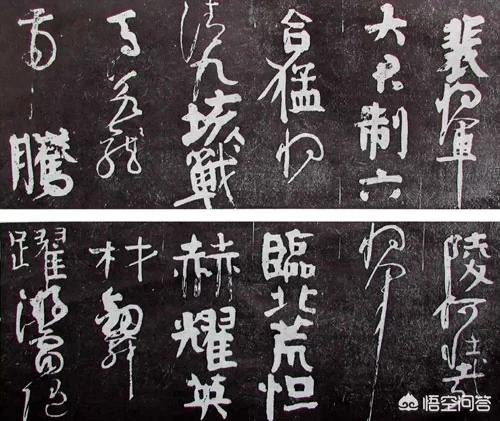 裴將軍
大君制六
合猛將
清九垓戰
馬若龍
虎騰
陵何壯哉
將軍
臨北荒烜
赫耀英
材劍舞
躍游電隨
悟空问答